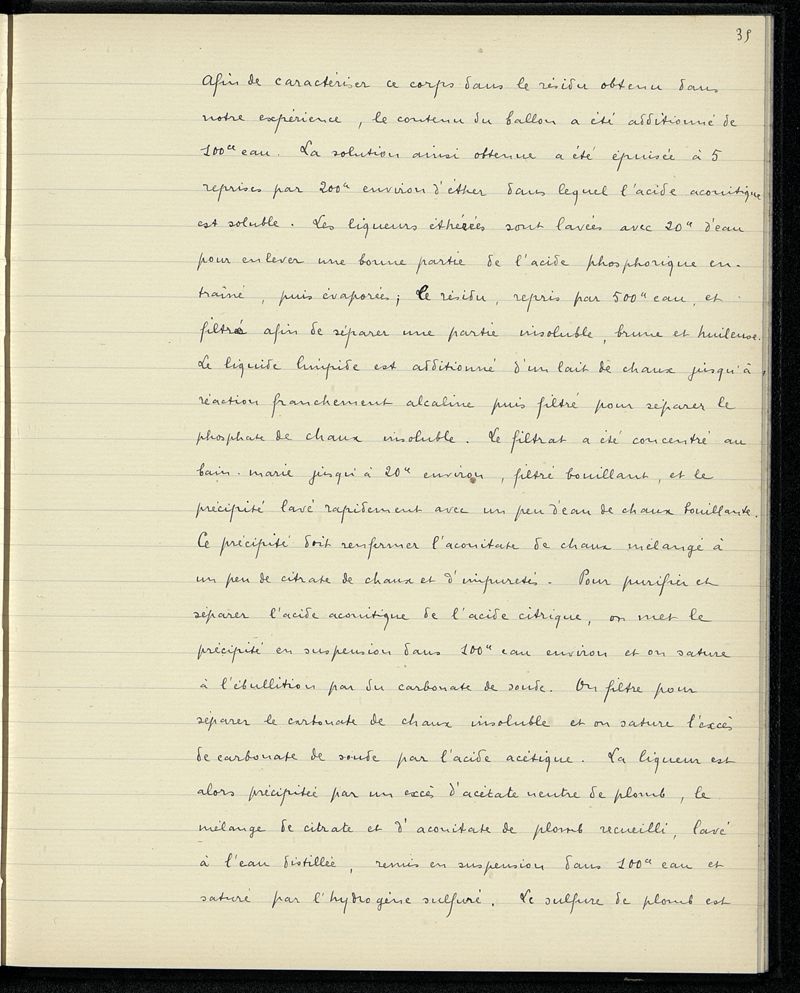 39
Afin de caractériser ce corps dans le résidu obtenu dans
notre expérience, le contenu du ballon a été additionné de
100cc eau. La solution ainsi obtenue a été épuisée à 5
reprises par 200cc environ d'éther dans lequel l'acide aconitique
est soluble. Les liqueurs éthérées sont lavées avec 20cc d'eau
pour enlever une bonne partie de l'acide phosphorique en-
trainé, puis évaporées; le résidu, repris par 500cc eau, et
filtré afin de séparer une partie insoluble, brune et huileuse.
Le liquide limpide est additionné d'un lait de chaux jusqu'à
réaction franchement alcaline puis filtré pour séparer le
phosphate de chaux insoluble. Le filtrat a été concentré au
bain-marie jusqu'à 20cc environ, filtré bouillant, et le
précipité lavé rapidement avec un peu d'eau de chaux bouillante.
Ce précipité doit renfermer l'aconitate de chaux mélangé à
un peu de citrate de chaux et d'impuretés. Pour purifier et
séparer l'acide aconitique de l'acide citrique, on met le
précipité en suspension dans 100cc eau environ et on sature
à l'ébullition par du carbonate de soude. On filtre pour
séparer le carbonate de chaux insoluble et on sature l'excès
de carbonate de soude par l'acide acétique. La liqueur est
alors précipitée par un excès d'acétate neutre de plomb, le
mélange de citrate et d'aconitate de plomb recueilli, lavé
à l'eau distillée, remis en suspension dans 100cc eau et
saturé par l'hydrogène sulfuré. Le sulfure de plomb est